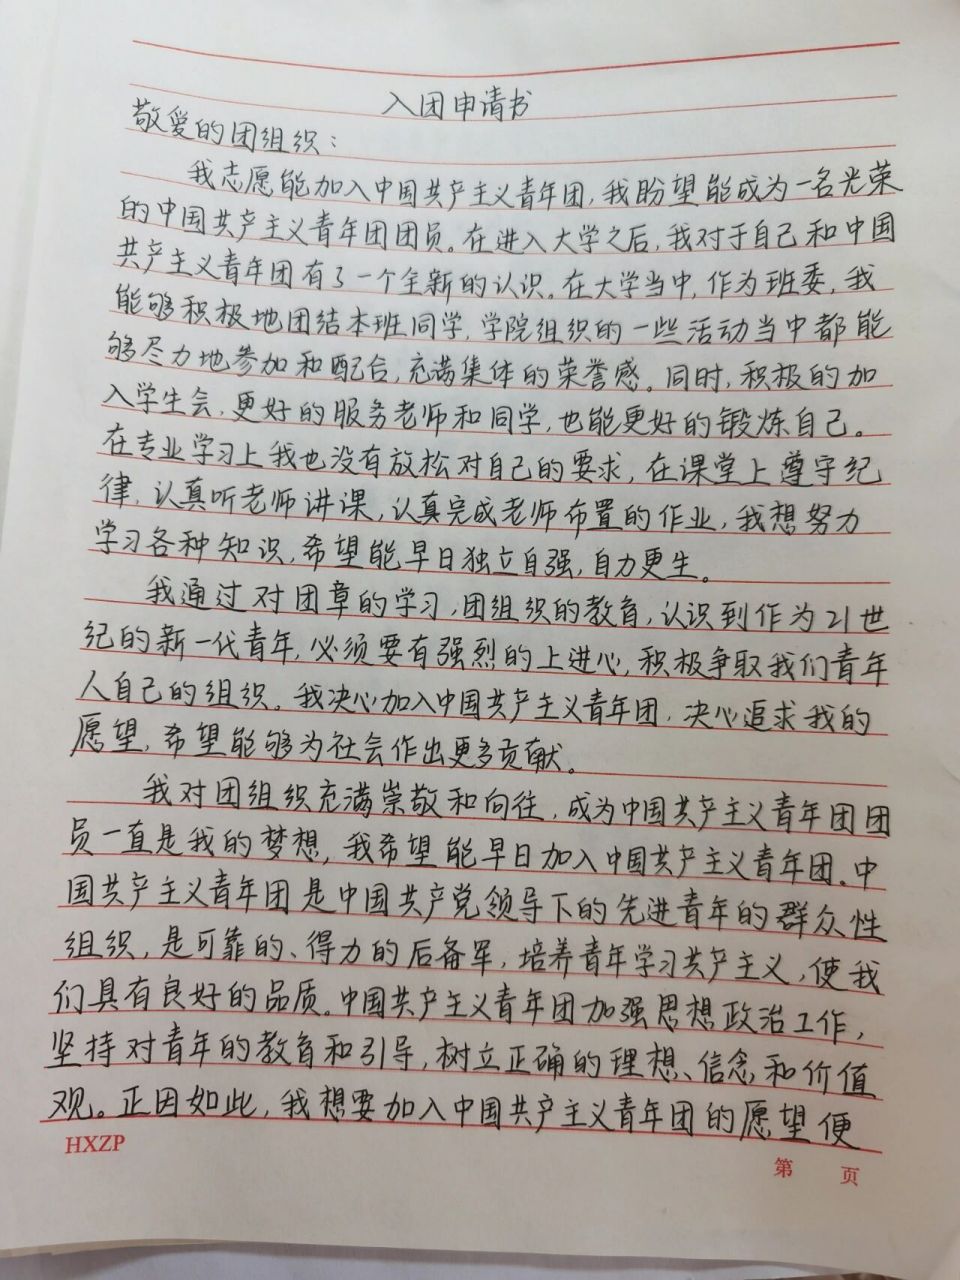 入团申请书
敬爱的团组织：
我志愿能加入中国共产主义青年团，我盼望能成为一名光荣
的中国共产主义青年团团员。在进入大学之后，我对于自己和中国
共产主义青年团有了一个全新的认识。在大学当中，作为班委，我
能够积极地团结本班同学，学院组织的一些活动当中都能
够尽力地参加和配合，充满集体的荣誉感。同时，积极的加
入学生会，更好的服务老师和同学，也能更好的锻炼自己。
在专业学习上我也没有放松对自己的要求，在课堂上遵守纪
律，认真听老师讲课，认真完成老师布置的作业，我想努力
学习各种知识，希望能早日独立自强，自力更生。
我通过对团章的学习，团组织的教育，认识到作为21世
纪的新一代青年，必须要有强烈的上进心，积极争取我们青年
人自己的组织。我决心加入中国共产主义青年团，决心追求我的
愿望，希望能够为社会作出更多贡献。
我对团组织充满崇敬和向往，成为中国共产主义青年团团
员一直是我的梦想，我希望能早日加入中国共产主义青年团。中
国共产主义青年团是中国共产党领导下的先进青年的群众性
组织，是可靠的、得力的后备军，培养青年学习共产主义，使我
们具有良好的品质。中国共产主义青年团加强思想政治工作，
坚持对青年的教育和引导，树立正确的理想、信念和价值
观。正因如此，我想要加入中国共产主义青年团的愿望便
HXZP
第 页